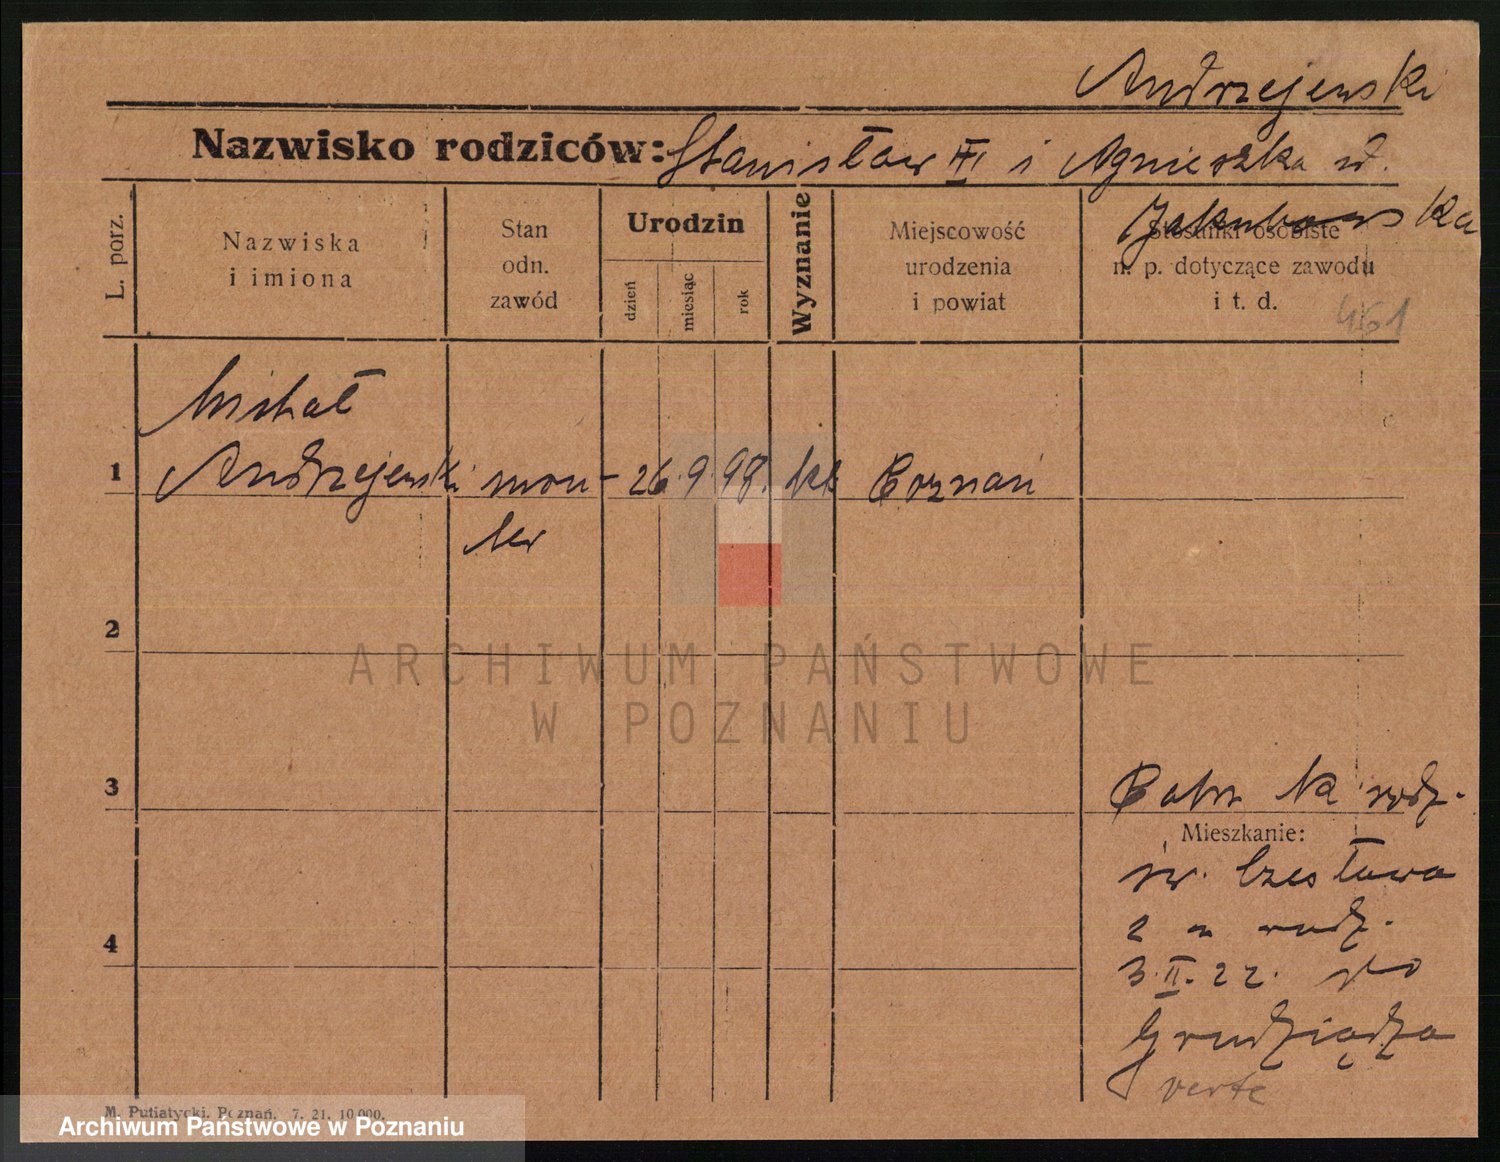 Andrzejewski
Nazwisko rodziców: Stanisław III i Agnieszka
Jakubowska
L. porz.
Nazwiska
i imiona
Stan
odn.
zawód
Urodzin
dzień
miesiąc
rok
Wyznanie
Miejscowość
urodzenia
i powiat
Stosunki osobiste
n. p. dotyczące zawodu
i t. d.
461
Michał
1 Andrzejewski mon- 26. 9. 98. kt Poznań
ter
2
3
Patrz rodz.
Mieszkanie:
św. Czesława
4 2 rodz.
3.II.22. do
Grudziądza
verte
M. Putiatycki, Poznań, 7. 21. 10.000.
ARCHIWUM PAŃSTWOWE
W POZNANIU
Archiwum Państwowe w Poznaniu